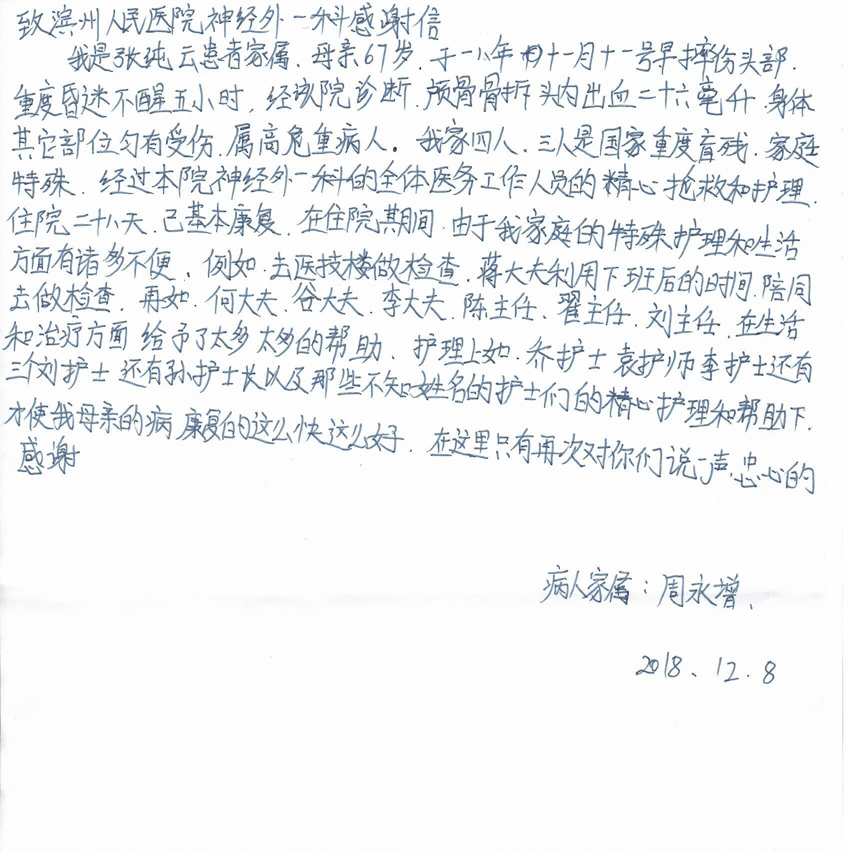 致滨州人民医院神经外一科感谢信
我是张纯云患者家属、母亲67岁、于一八年十一月十一号早摔伤头部、
重度昏迷不醒五小时，经该院诊断、颅骨骨折头内出血二十六毫升、身体
其它部位匀有受伤、属高危重病人。我家四人、三人是国家重度盲残、家庭
特殊、经过本院神经外一科的全体医务工作人员的精心抢救和护理、
住院二十八天、己基本康复、在住院其期间、由于我家庭的特殊护理和生活
方面有诸多不便、例如、去医技楼做检查、蒋大夫利用下班后的时间、陪同
去做检查、再如、何大夫、谷大夫、李大夫、陈主任、翟主任、刘主任、在生活
和治疗方面给予了太多太多的帮助、护理上如、乔护士袁护师李护士还有
三个刘护士还有孙护士长以及那些不知姓名的护士们的精心护理和帮助下、
才使我母亲的病康复的这么快这么好、在这里只有再次对你们说一声、忠心的
感谢
病人家属：周永增、
2018、12.8